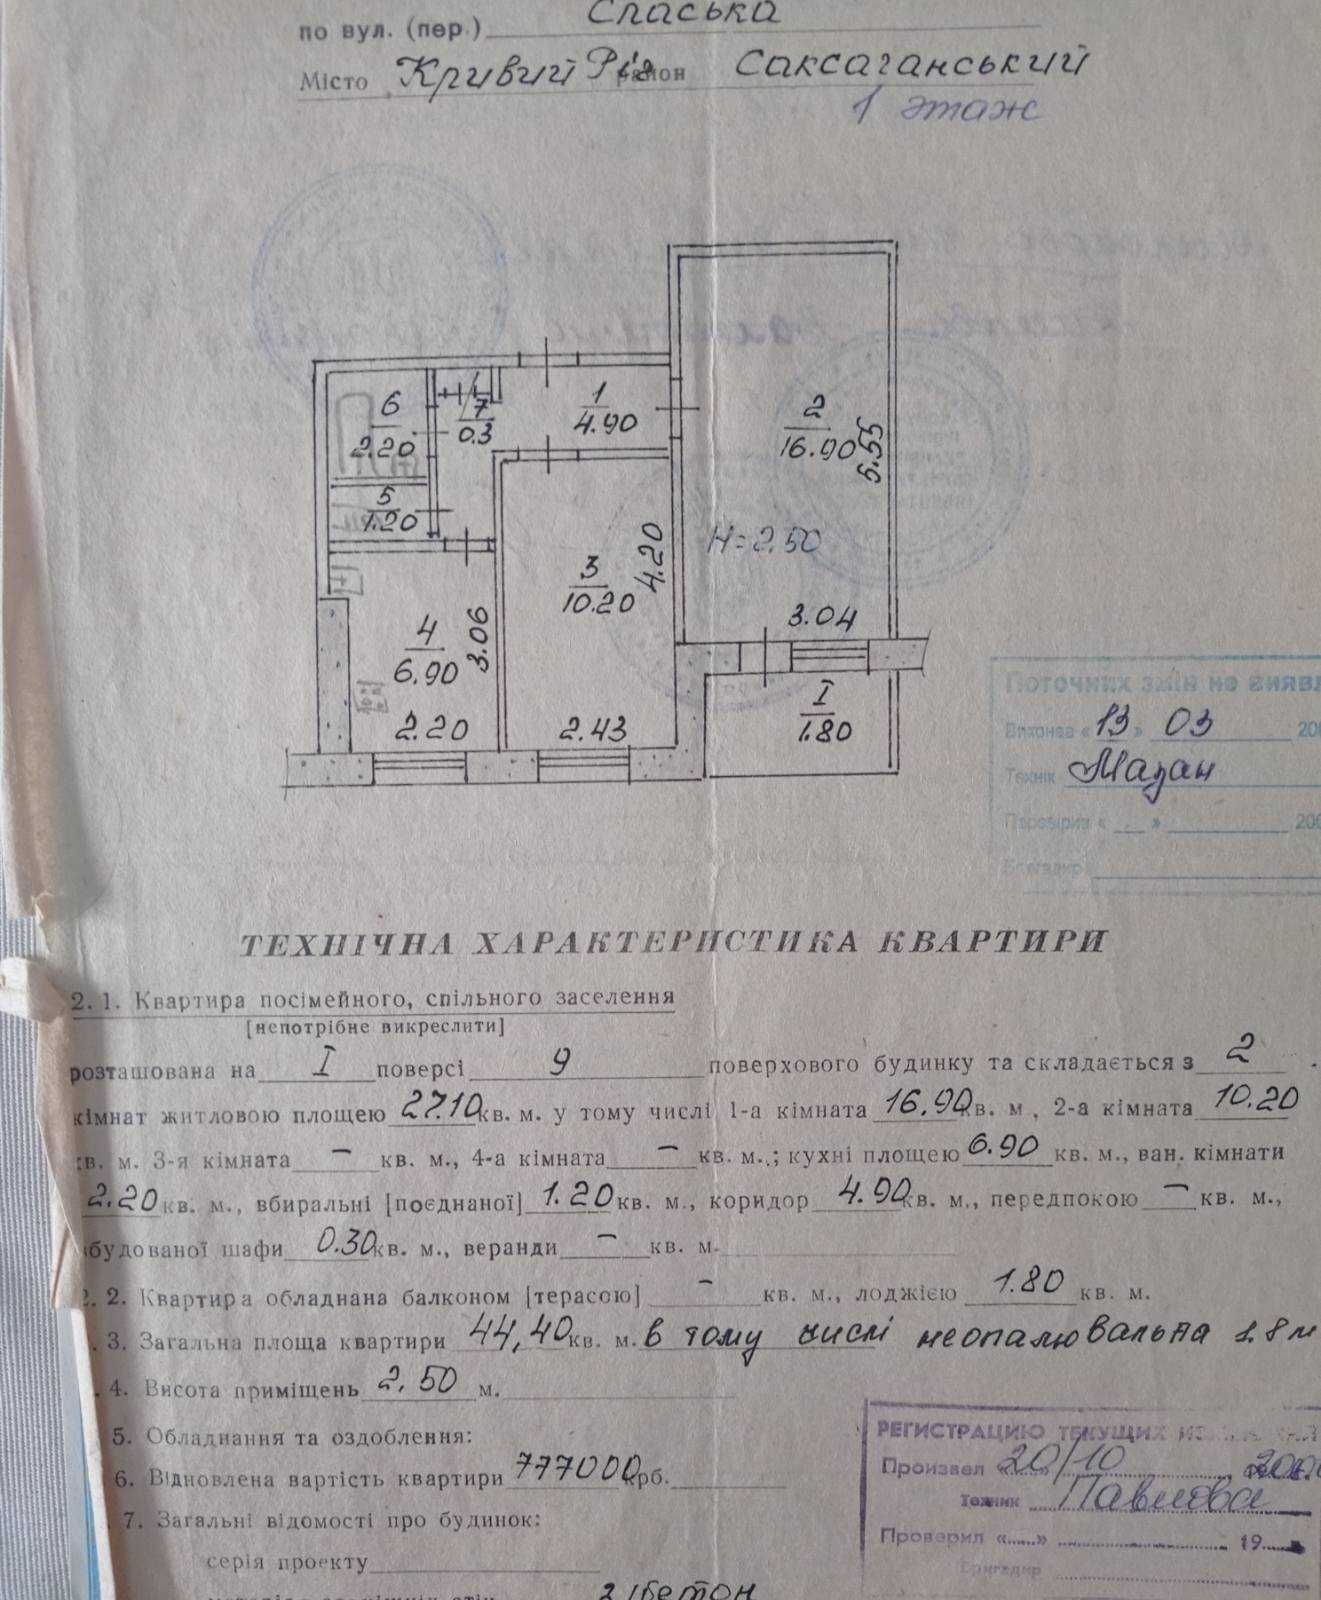 по вул. (пер.) Спаська
Місто Кривий Ріг район Саксаганський
1 этаж
6
2.20
7
0.3
1
4.90
2
16.90
5.55
5
1.20
H=2.50
3
10.20
4.20
4
6.90
3.06
3.04
I
1.80
2.20
2.43
Поточних змін не виявл
Виконав «13» 03 200
Технік Мазан
Перевірив « » 200
Бригадир
ТЕХНІЧНА ХАРАКТЕРИСТИКА КВАРТИРИ
2. 1. Квартира посімейного, спільного заселення
[непотрібне викреслити]
розташована на I поверсі 9 поверхового будинку та складається з 2
кімнат житловою площею 27.10 кв. м. у тому числі 1-а кімната 16.90 кв. м, 2-а кімната 10.20
кв. м. 3-я кімната – кв. м., 4-а кімната – кв. м.; кухні площею 6.90 кв. м., ван. кімнати
2.20 кв. м., вбиральні [поєднаної] 1.20 кв. м., коридор 4.90 кв. м., передпокою – кв. м.,
вбудованої шафи 0.30 кв. м., веранди – кв. м.
2. 2. Квартира обладнана балконом [терасою] – кв. м., лоджією 1.80 кв. м.
. 3. Загальна площа квартири 44,40 кв. м. в тому числі неопалювальна 1.8 м
. 4. Висота приміщень 2,50 м.
5. Обладнання та оздоблення:
6. Відновлена вартість квартири 777000 крб.
7. Загальні відомості про будинок:
серія проекту
РЕГИСТРАЦИЮ ТЕКУЩИХ
Произвел «20/10
Техник Павлова
Проверил «......» 19
Бригадир